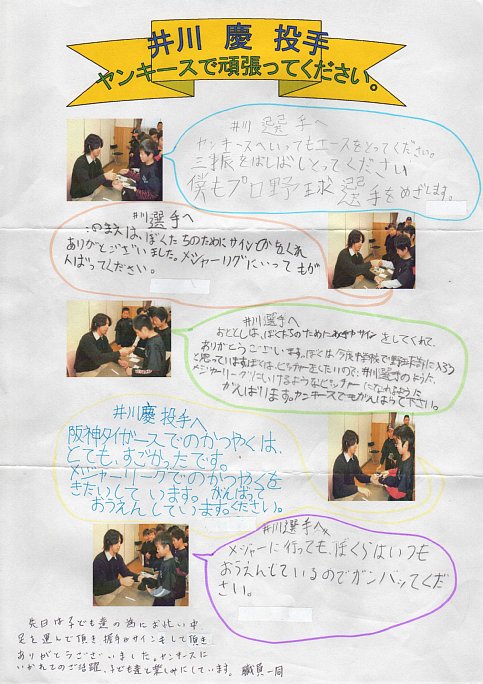 井川 慶 投手
ヤンキースで頑張ってください。
井川 選手へ
ヤンキースへいってもエースをとってください。
三振をばしばしとってください
僕もプロ野球選手をめざします。
井川選手へ
このまえは、ぼくたちのためにサイン
ありがとうございました。メジャーリグにいって もが
んばってください。
井川選手へ
おととしは、ぼくたちのために サインをしてくれて、
ありがとうございます。ぼくは 中学校で野球部に入ろう
と思っています。ぼくは、ピッチャーをしたいので、井川選手のような、
メジャーリーグにいけるようなピッチャーになれるように
がんばります。ヤンキースでもがんばって下さい。
井川慶 投手へ
阪神タイガースでのかつやくは、
とても、すごかったです。
メジャーリーグでのかつやくを
きたいして います。がんばって
おうえんしています。ください。
井川選手へ
メジャーに行っても、ぼくらはいつも
おうえんしているのでガンバッてくだ
さい。
先日は子ども達の為にお忙い中
足を運んで頂き 握手やサインをして頂き
ありがとうございました。ヤンキースに
いかれてのご活躍、子ども達と楽しみにしています。 職員一同